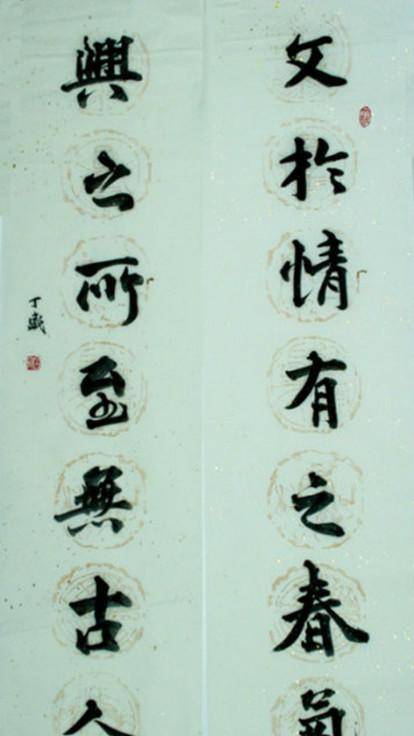 文於情有之春氣
興之所至無古人
丁戯